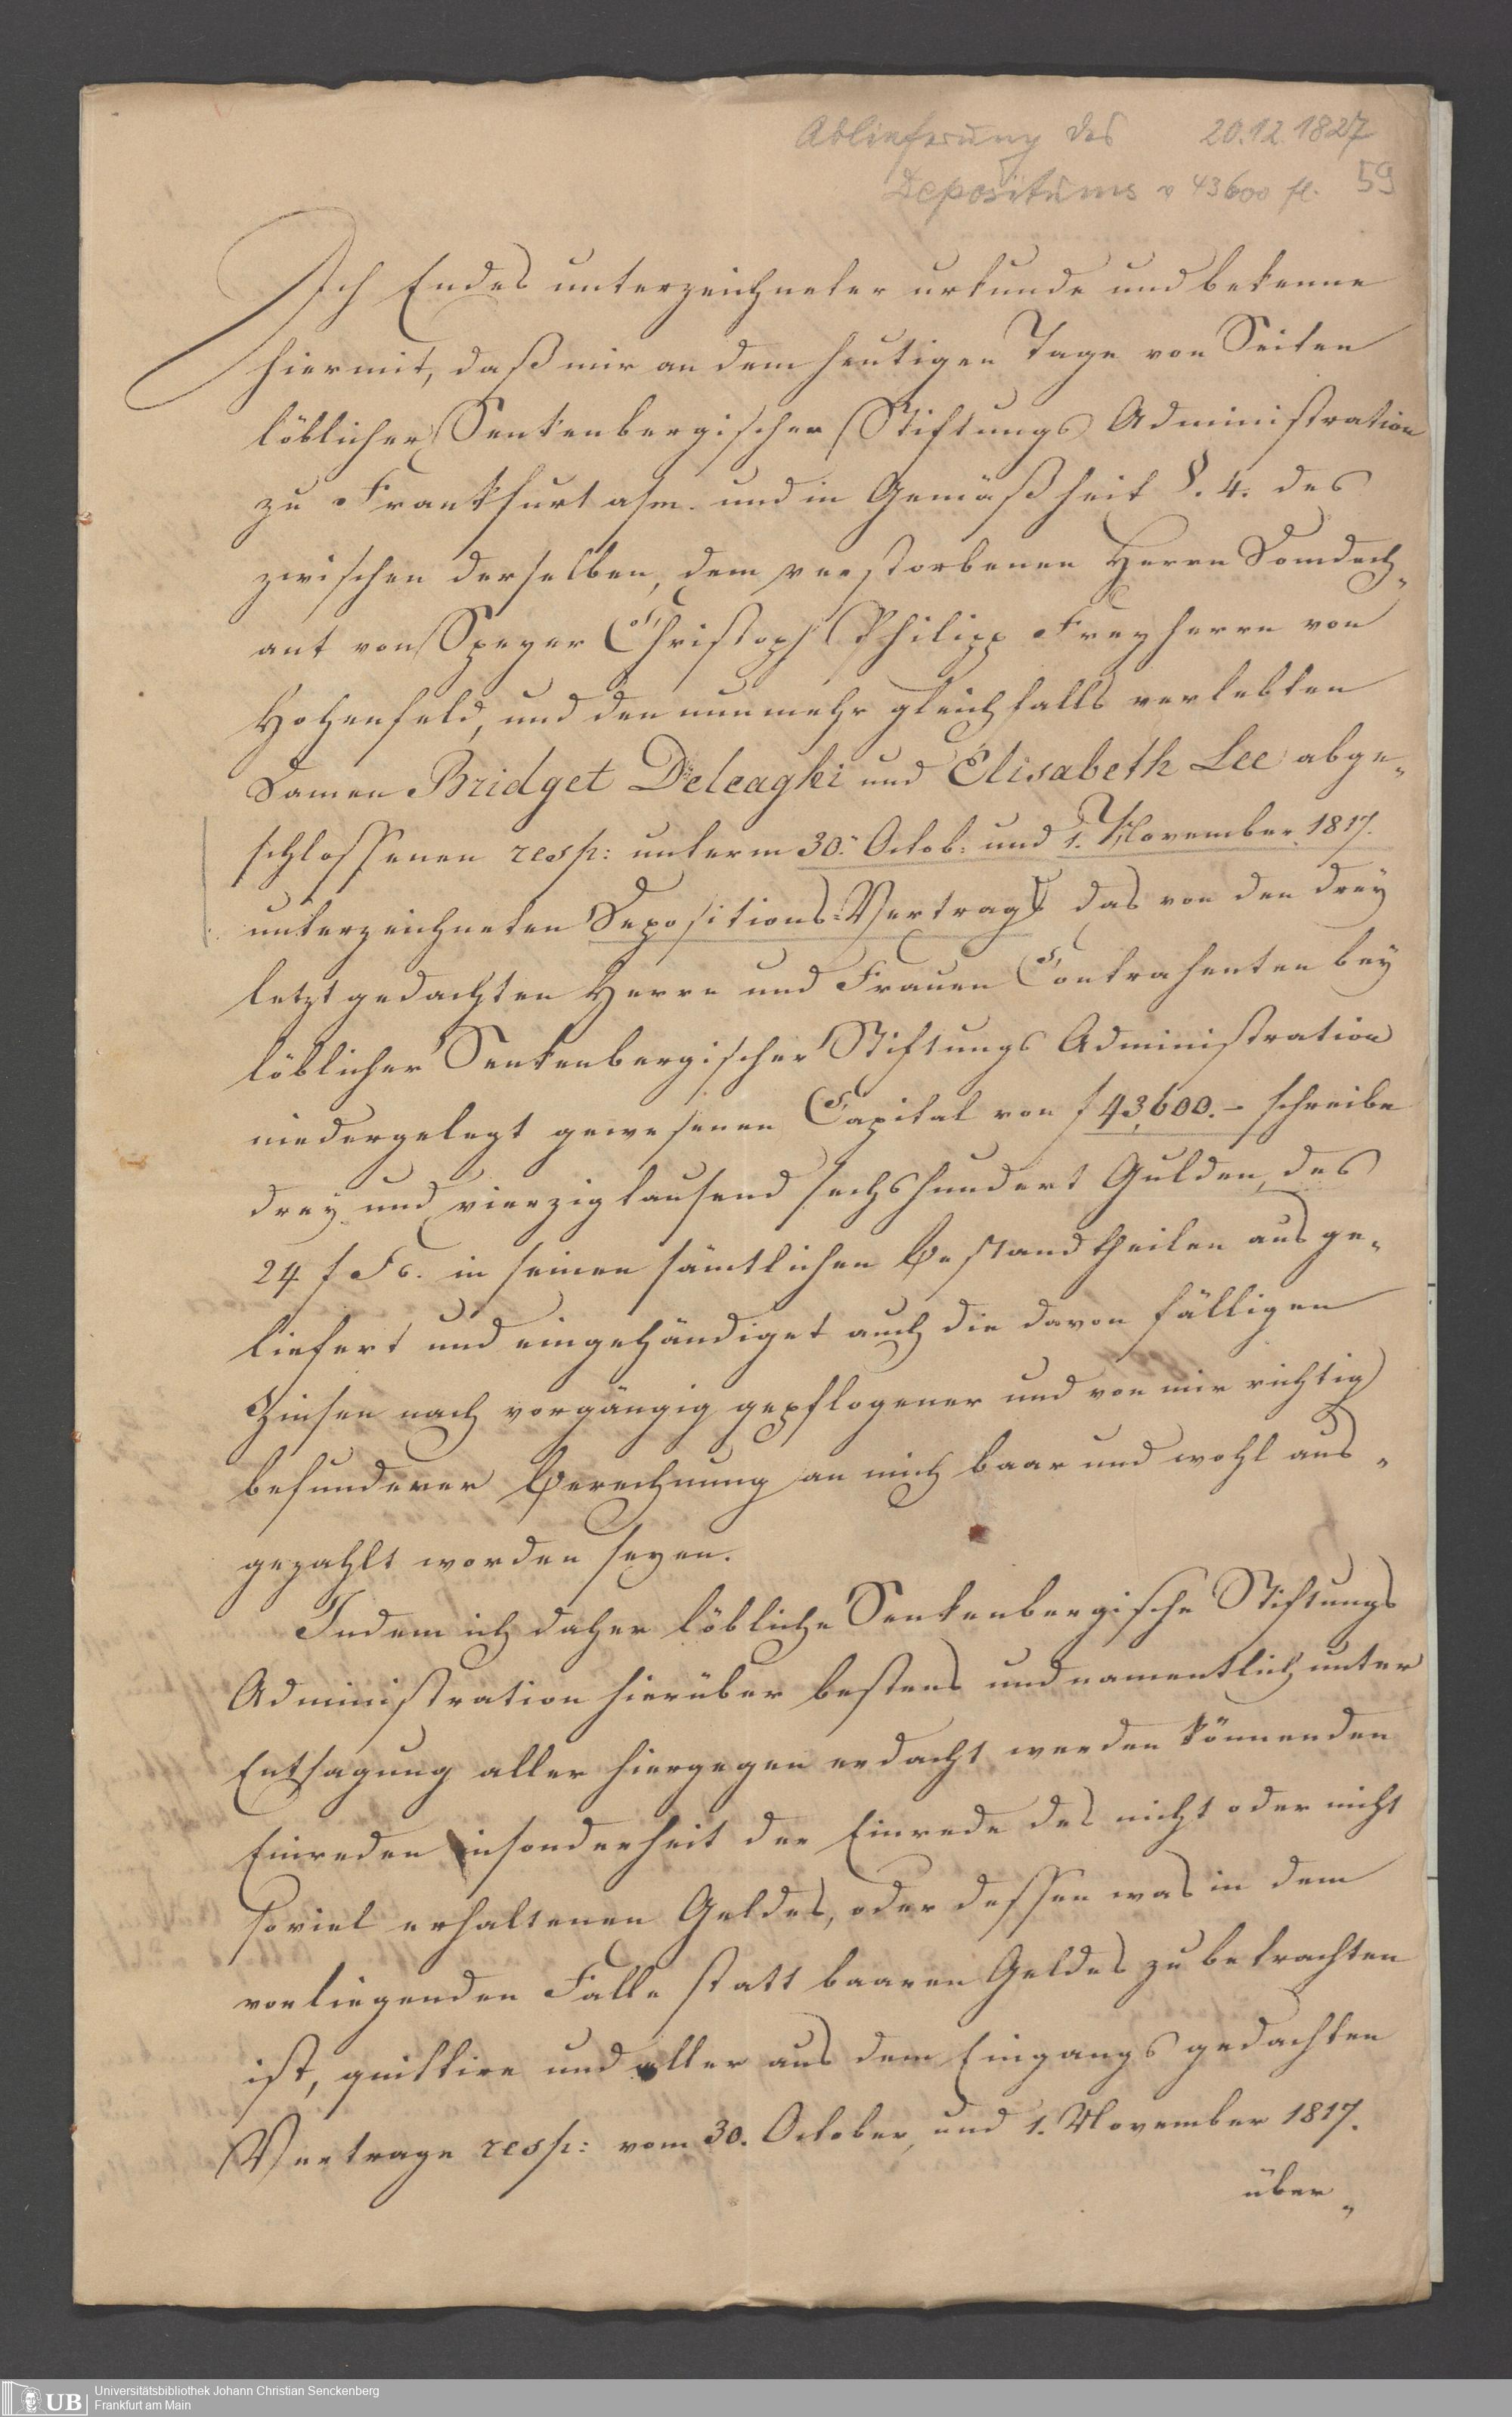 Ablieferung des 20.12.1827
Depositums v 43600 fl. 59
Ich Endes unterzeichneter urkunde und bekenne
hiermit, daß mir an dem heutigen Tage von Seiten
löblicher Senkenbergischer Stiftungs Administration
zu Frankfurt a/m. und in Gemäßheit §. 4. des
zwischen derselben, dem verstorbenen Herrn Domdech„
ant von Speyer Christoph Philipp Freyherrn von
Hohenfeld, und den nunmehr gleichfalls verlebten
Damen Bridget Deleaghi und Elisabeth Lee abge„
schlossenen resp: unterm 30. Octob: und 1. November 1817.
unterzeichneten Depositions-Vertrags das von den drey
letzt gedachten Herrn und Frauen Contrahenten bey
löblicher Senkenbergischer Stiftungs Administration
niedergelegt gewesenen Capital von f 43,600.– schreibe
drey und vierzig tausend sechshundert Gulden, des
24 f Fs. in seinen sämtlichen Bestandtheilen ausge„
liefert und eingehändiget auch die davon fälligen
Zinsen nach vorgängig gepflogener und von mir richtig
befundener Berechnung an mich baar und wohl aus„
gezahlt worden seyen.
Indem ich daher löbliche Senkenbergische Stiftungs
Administration hierüber bestens und namentlich unter
Entsagung aller hiergegen erdacht werden könnenden
Einreden insonderheit der Einrede des nicht oder nicht
soviel erhaltenen Geldes, oder dessen was in dem
vorliegenden Falle statt baaren Geldes zu betrachten
ist, quittire und aller aus dem Eingangs gedachten
Vertrage resp: vom 30. October, und 1. November 1817.
über„
UB Universitätsbibliothek Johann Christian Senckenberg
Frankfurt am Main